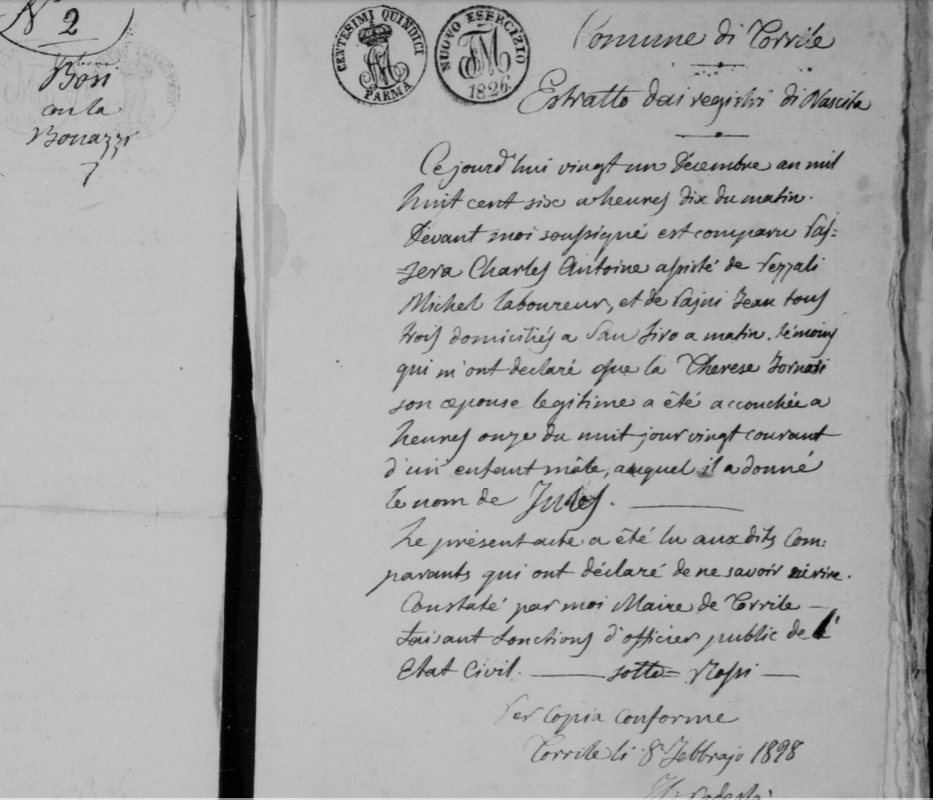 N° 2
Bosi
con la
Bonazzi
CENTESIMI QUINDICI
PARMA
NUOVO ESERCIZIO
1826
Comune di Torrile
Estratto dai registri di Nascita
Ce jourd'hui vingt un Décembre an mil
huit cent six a heures dix du matin.
Dévant moi soussigné est comparu
Charles Antoine assisté de Vezzali
Michel laboureur, et de Jean tous
trois domiciliés a San Siro a matin. témoins
qui m'ont declaré que la Therese Fornari
son epouse legitime a été accouchée a
heures onze du nuit jour vingt courant
d'un enfant mâle, auquel il a donné
le nom de Jules.
Le présent acte a été lu aux dits Com:
parants qui ont déclaré de ne savoir écrire.
Constaté par moi Maire de Torrile
faisant fonctions d'officier public de l'
Etat Civil. Rossi
Per Copia Conforme
Torrile li 8 Febbrajo 1828
Il Podestà